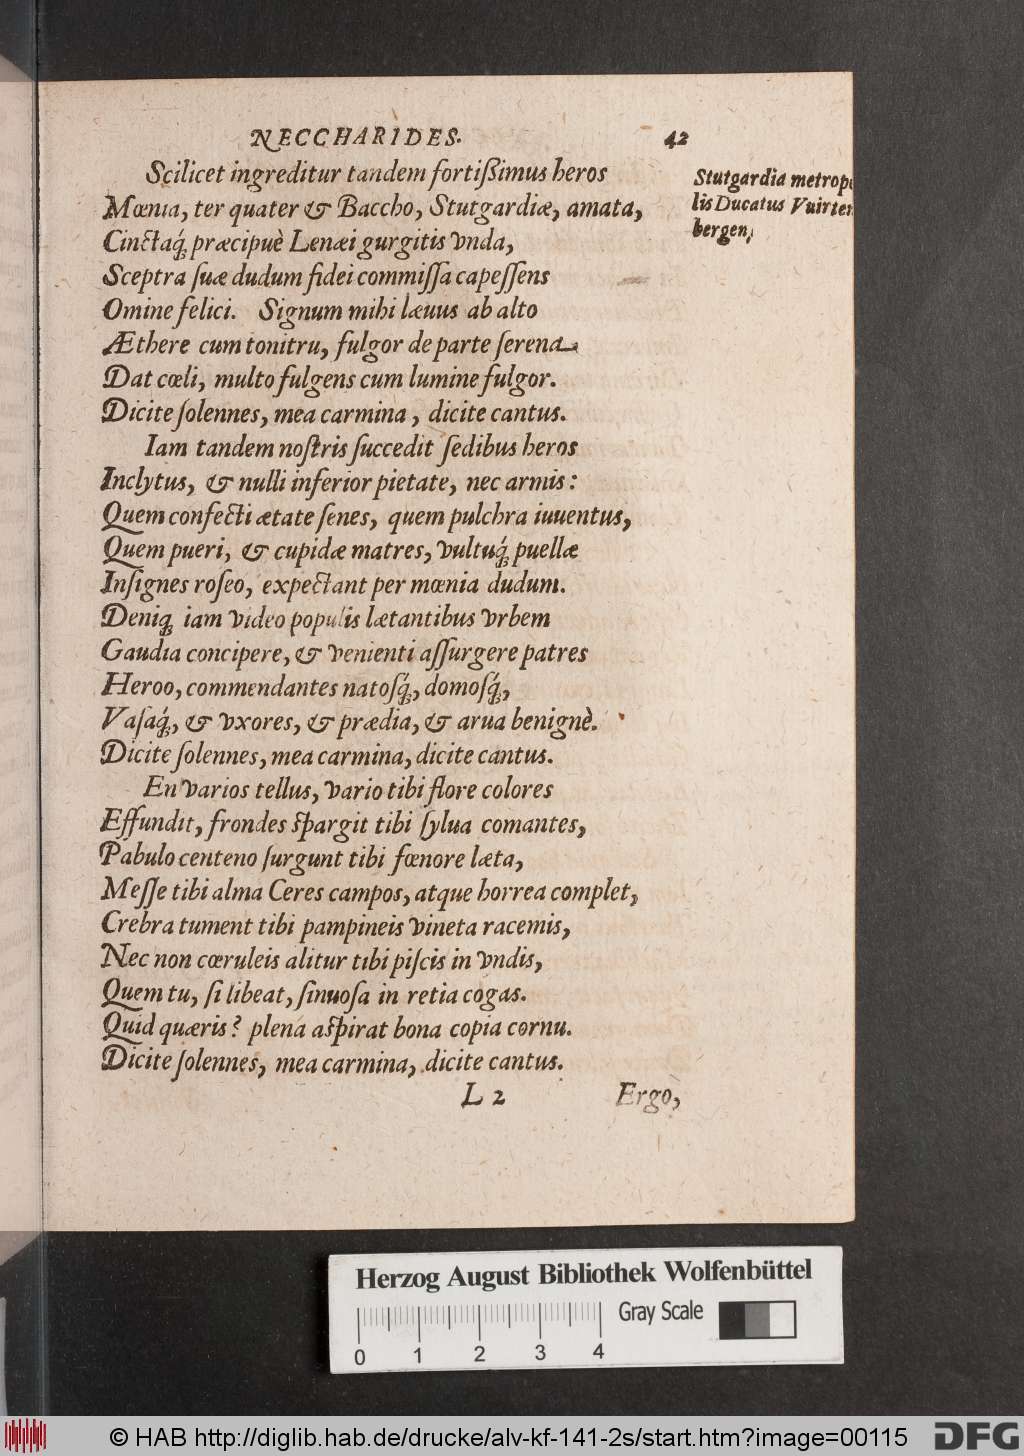 NECCHARIDES. 42
Scilicet ingreditur tandem fortißimus heros
Mœnia, ter quater & Baccho, Stutgardiæ, amata,
Cinctaq́; præcipuè Lenæi gurgitis vnda,
Sceptra ſuæ dudum fidei commiſſa capeſſens
Omine felici. Signum mihi læuus ab alto
Æthere cum tonitru, fulgor de parte ſerena
Dat cœli, multo fulgens cum lumine fulgor.
Dicite ſolennes, mea carmina, dicite cantus.
Iam tandem noſtris ſuccedit ſedibus heros
Inclytus, & nulli inferior pietate, nec armis:
Quem confecti ætate ſenes, quem pulchra iuuentus,
Quem pueri, & cupidæ matres, vultuq́; puellæ
Inſignes roſeo, expectant per mœnia dudum.
Deniq; iam video populis lætantibus vrbem
Gaudia concipere, & venienti aſſurgere patres
Heroo, commendantes natoſq́;, domoſq́;,
Vaſaq́;, & vxores, & prædia, & arua benignè.
Dicite ſolennes, mea carmina, dicite cantus.
En varios tellus, vario tibi flore colores
Effundit, frondes ſpargit tibi ſylua comantes,
Pabulo centeno ſurgunt tibi fœnore læta,
Meſſe tibi alma Ceres campos, atque horrea complet,
Crebra tument tibi pampineis vineta racemis,
Nec non cœruleis alitur tibi piſcis in vndis,
Quem tu, ſi libeat, ſinuoſa in retia cogas.
Quid quæris? plena aſpirat bona copia cornu.
Dicite ſolennes, mea carmina, dicite cantus.
L 2 Ergò,
Stutgardia metropo
lis Ducatus Vuirten
bergen,
Herzog August Bibliothek Wolfenbüttel
Gray Scale
0 1 2 3 4
© HAB http://diglib.hab.de/drucke/alv-kf-141-2s/start.htm?image=00115
DFG